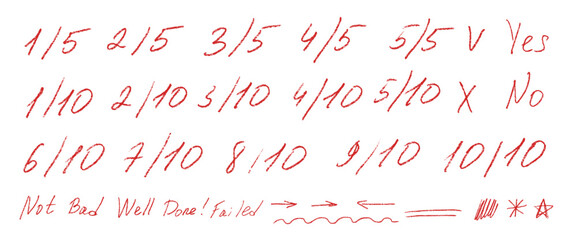 1/5 2/5 3/5 4/5 5/5 V Yes
1/10 2/10 3/10 4/10 5/10 X No
6/10 7/10 8/10 9/10 10/10
Not Bad Well Done! Failed